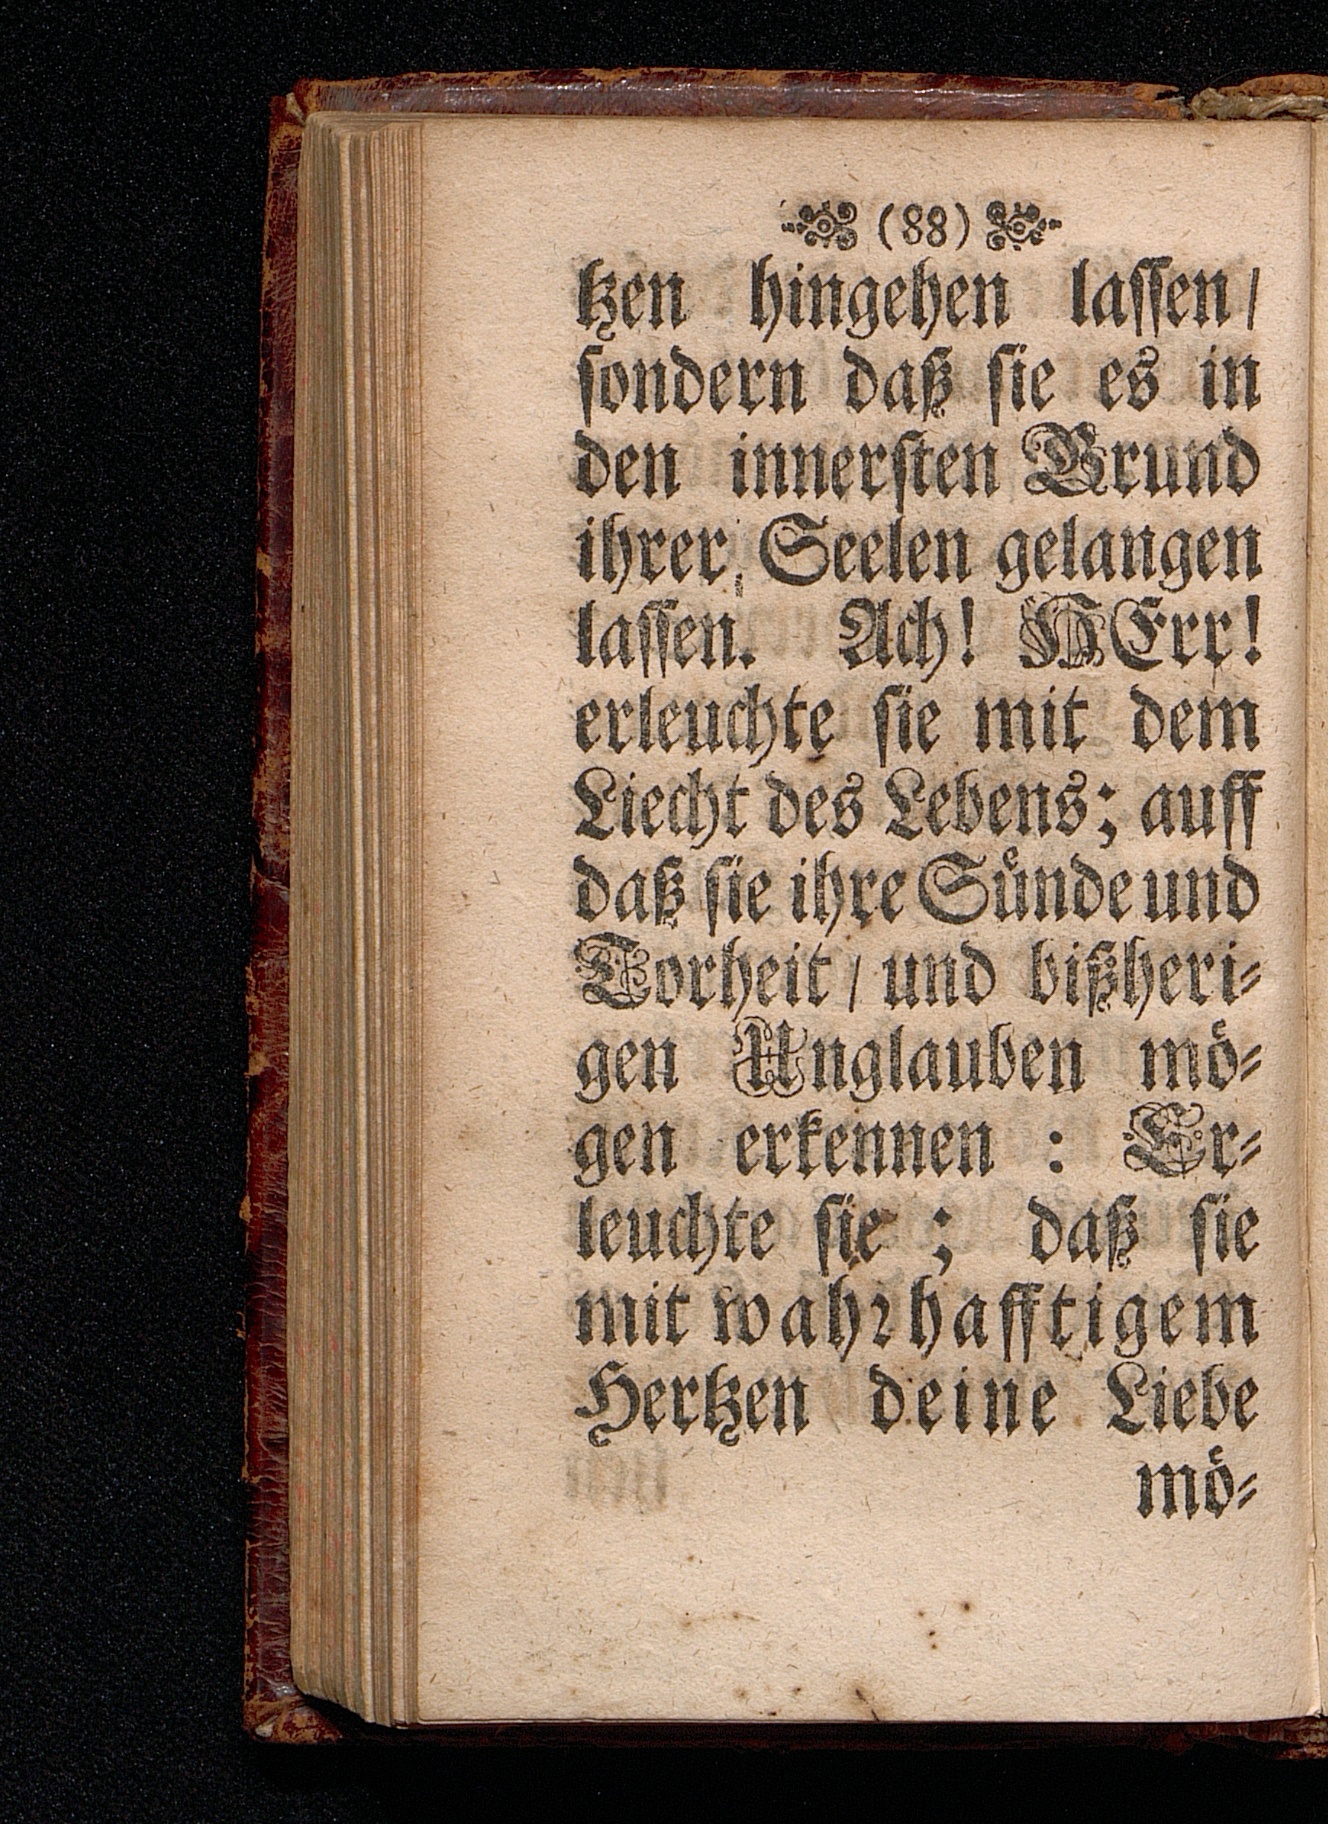 (88)
tzen hingehen lassen/
sondern daß sie es in
den innersten Grund
ihrer Seelen gelangen
lassen. Ach! HErr!
erleuchte sie mit dem
Liecht des Lebens; auff
daß sie ihre Sünde und
Torheit/ und bißheri-
gen Unglauben mö-
gen erkennen : Er-
leuchte sie ; daß sie
mit wahrhafftigem
Hertzen deine Liebe
mö-